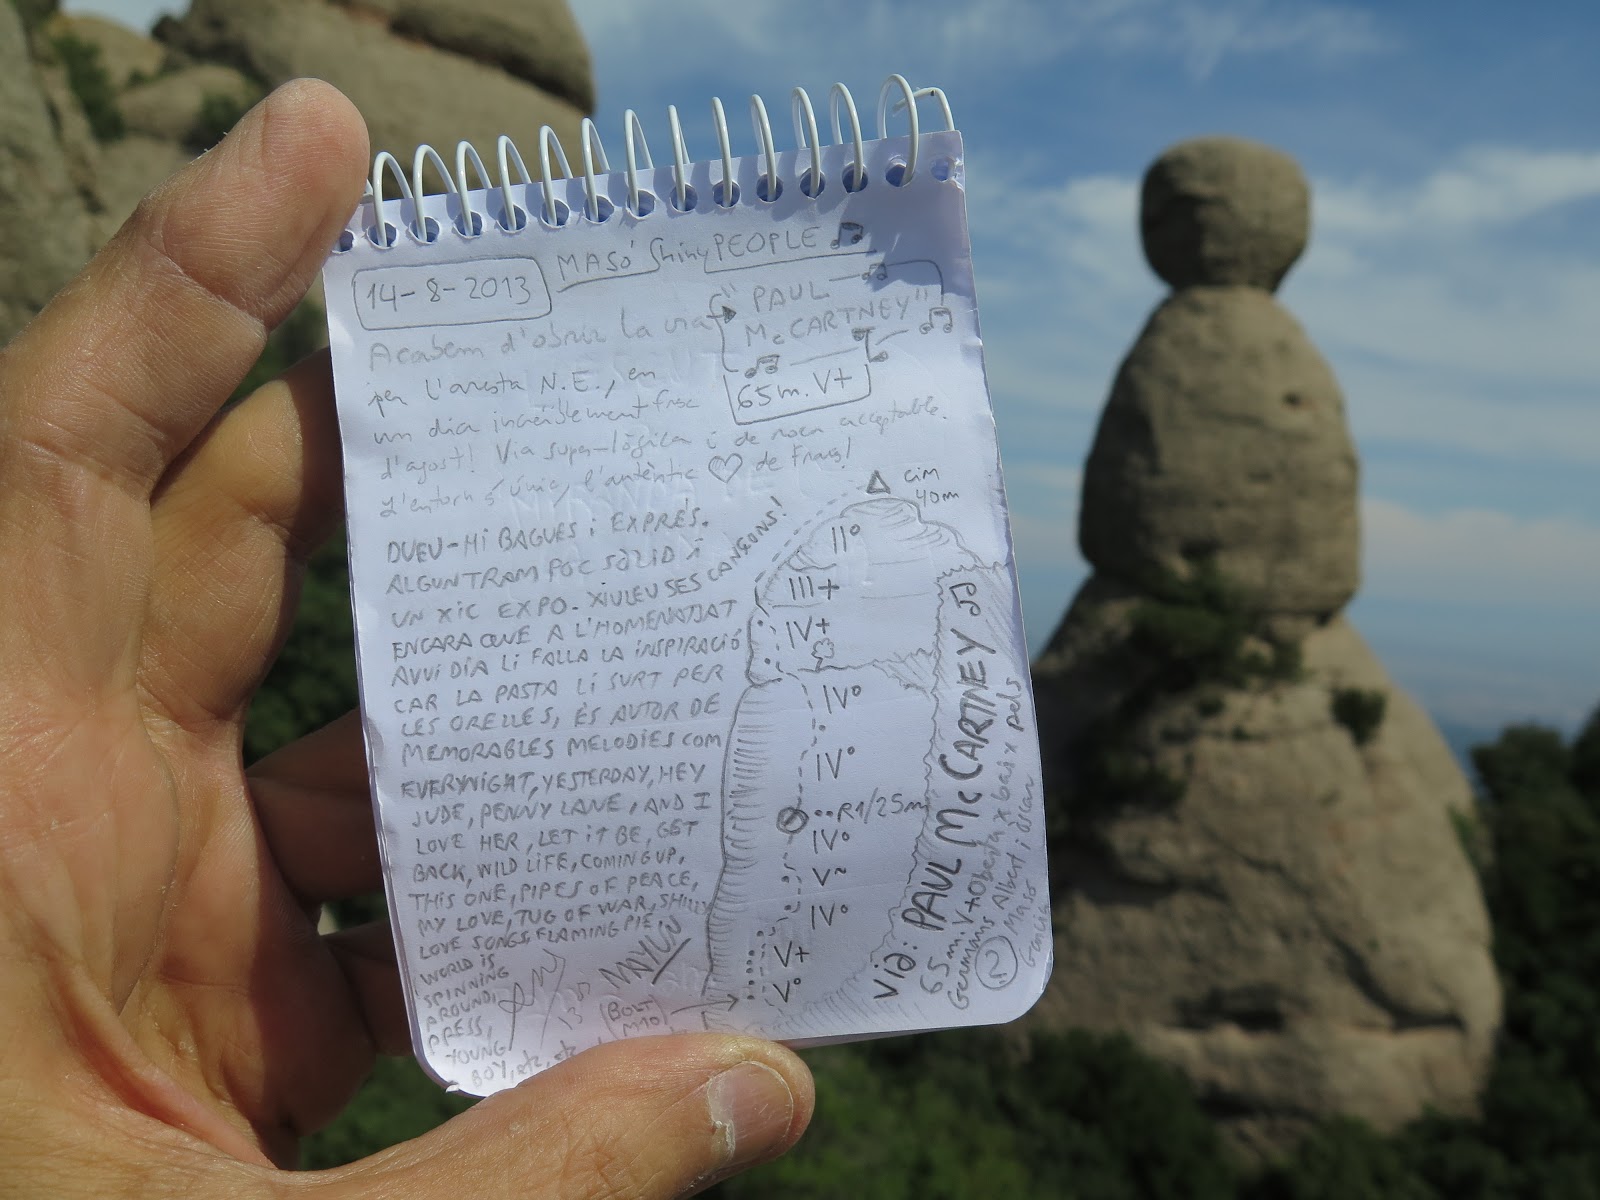 MASÓ Shiny PEOPLE
14-8-2013
Acabem d'obrir la via
"PAUL
McCARTNEY"
65m. V+
per l'aresta N.E., en
un dia increïblement fresc
d'agost! Via super-lògica i de roca acceptable.
L'entorn és únic, l'autèntic ♡ de Frares!
DUEU-HI BAGUES i EXPRÉS.
ALGUN TRAM POC SÒLID i
UN XIC EXPO. XIULEU SES CANÇONS!
ENCARA QUE A L'HOMENATJAT
AVUI DIA LI FALLA LA INSPIRACIÓ
CAR LA PASTA LI SURT PER
LES ORELLES, ÉS AUTOR DE
MEMORABLES MELODIES COM
EVERYNIGHT, YESTERDAY, HEY
JUDE, PENNY LANE, AND I
LOVE HER, LET IT BE, GET
BACK, WILD LIFE, COMING UP,
THIS ONE, PIPES OF PEACE,
MY LOVE, TUG OF WAR, SILLY
LOVE SONGS, FLAMING PIE,
WORLD IS
SPINNING
AROUND,
PRESS,
YOUNG
BOY, etc, etc
cim
40m
II°
III+
IV+
IV°
IV°
R1/25m
IV°
V~
IV°
V+
V°
BOLT
M10
Via: PAUL McCARTNEY
65m. V+ Oberta x baix x pels
Germans Albert i Òscar
Masó
Garcia